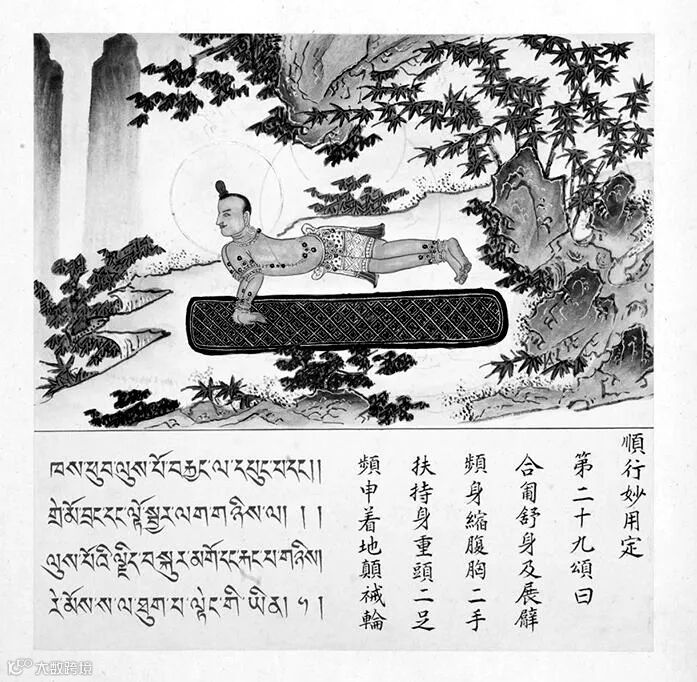 順行妙用定
第二十九頌曰
合匐舒身及展臂
頻身縮腹胸二手
扶持身重頭二足
頻申着地顛祴輪
ཁས་ཕུབ་ལུས་པོ་བརྐྱང་ལ་དཔུང་པ་དང་། །
གྲེ་མོ་བྲང་དང་ལྟོ་སྦྱར་ལག་གཉིས་ལ། ། །
ལུས་པོའི་ལྗིད་བསྐུར་མགོ་དང་རྐང་པ་གཉིས།
རེ་མོས་ས་ལ་ཐུག་པ་ལྟེང་གི་ཡིན།
大数跨境